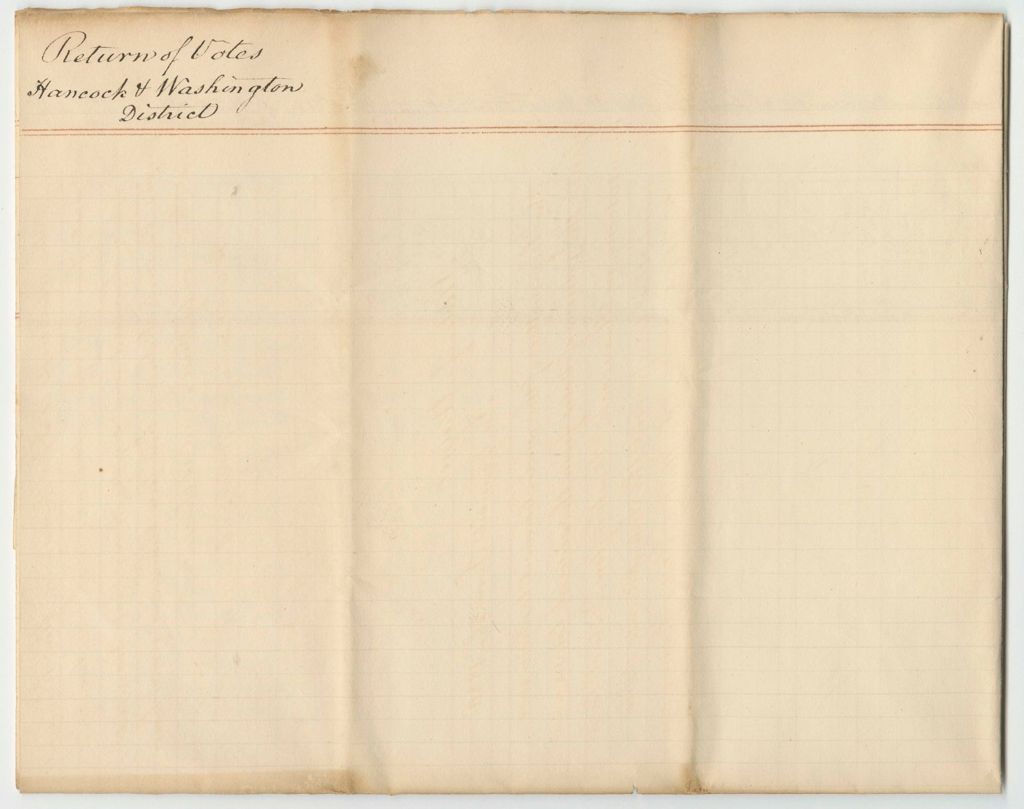 Return of Votes
Hancock & Washington
District